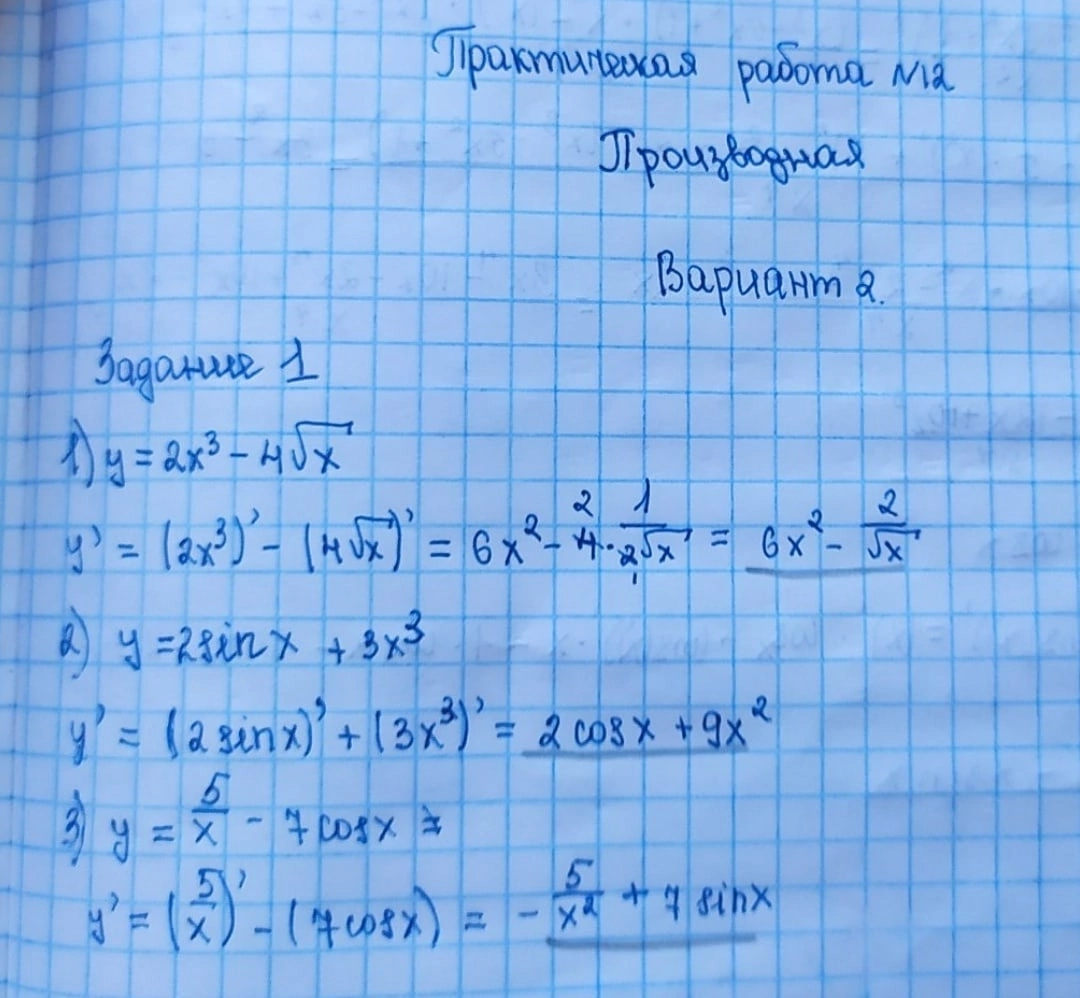 Практическая работа №12
Производная
Вариант 2.
Задание 1
1) y = 2x³ - 4√x
y' = (2x³)' - (4√x)' = 6x² - 4̶² · 1/2̶₁√x = 6x² - 2/√x
2) y = 2sinx + 3x³
y' = (2sinx)' + (3x³)' = 2cosx + 9x²
3) y = 5/x - 7cosx =
y' = (5/x)' - (7cosx) = - 5/x² + 7sinx